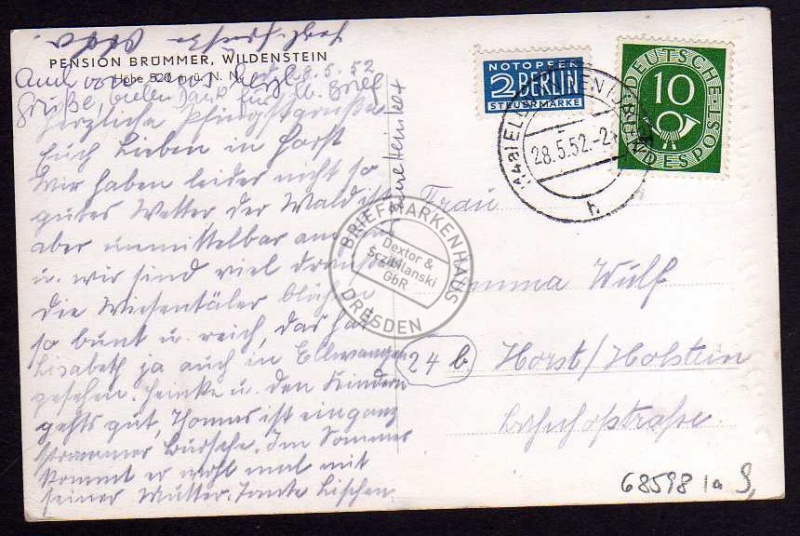 PENSION BRÜMMER, WILDENSTEIN
Höhe 520 m ü. N. N.
28.5.52
Auch von uns herzl.
Grüße, vielen Dank für lb. Brief
Herzliche Pfingstgrüße
Euch Lieben in Horst
Wir haben leider nicht so
gutes Wetter der Wald ist
aber unmittelbar am
u. wir sind viel draußen
die Wiesentäler blühen
so bunt u. reich, das hat
Lisabeth ja auch in Ellwangen
gesehen. Heinke u. den Kindern
gehts gut, Thomas ist ein ganz
strammer Bursche. Im Sommer
kommt er wohl mal mit
seiner Mutter. Tante Lischen
NOTOPFER
2 BERLIN
STEUERMARKE
DEUTSCHE BUNDESPOST
10
(14a) ELLWANGEN (JAGST)
28.5.52.-2
h
Frau
Emma Wulf
24b Horst/Holstein
Bahnhofstraße
BRIEFMARKENHAUS
Dextor &
Sczibilanski
GbR
DRESDEN
68598 1a S,